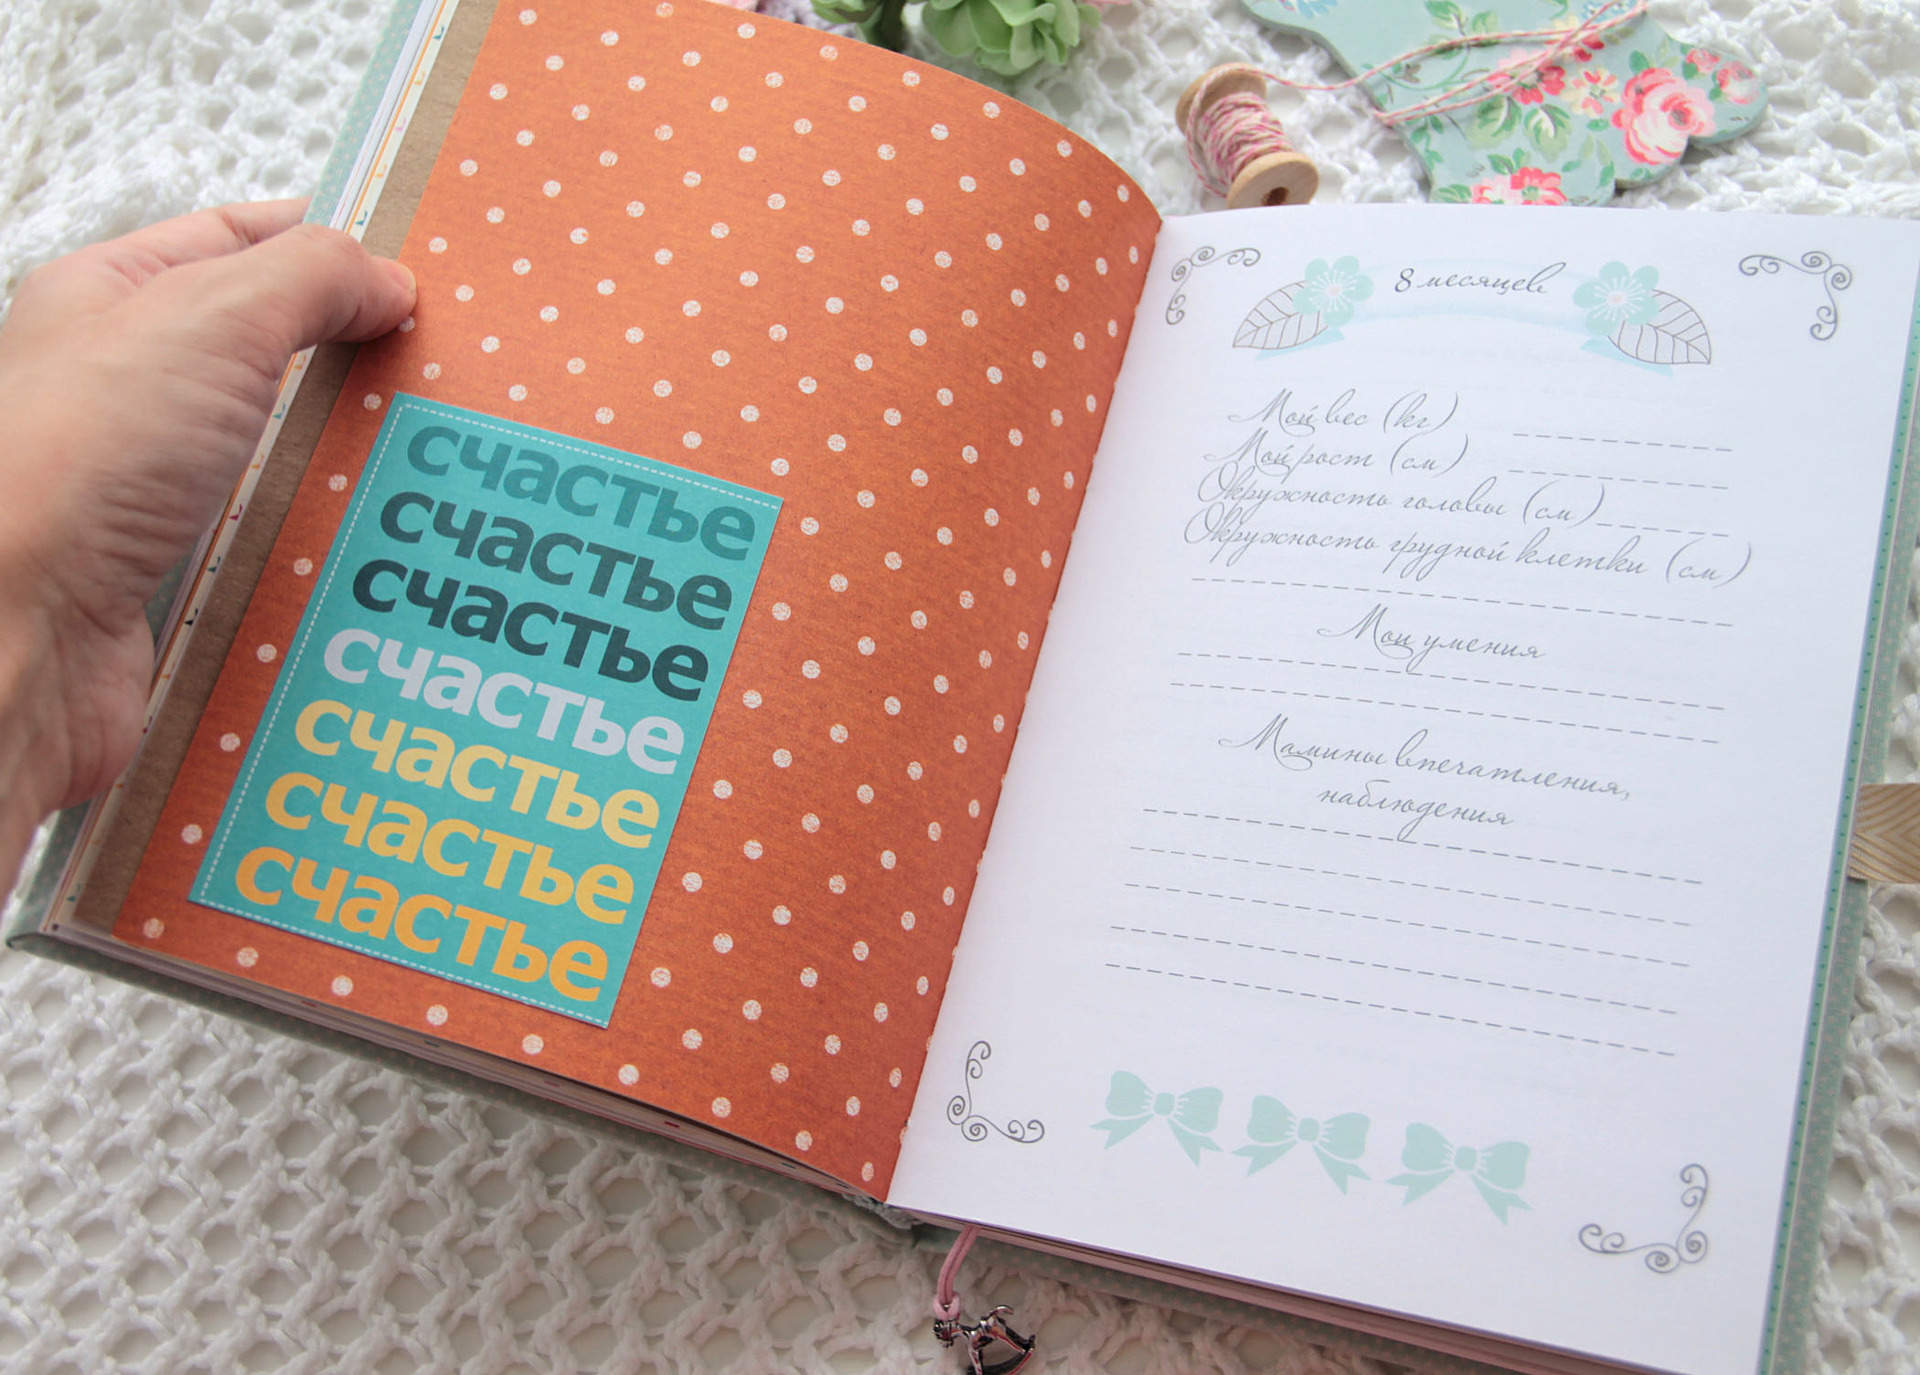 счастье
счастье
счастье
счастье
счастье
счастье
счастье
8 месяцев
Мой вес (кг)
Мой рост (см)
Окружность головы (см)
Окружность грудной клетки (см)
Мои умения
Мамины впечатления,
наблюдения